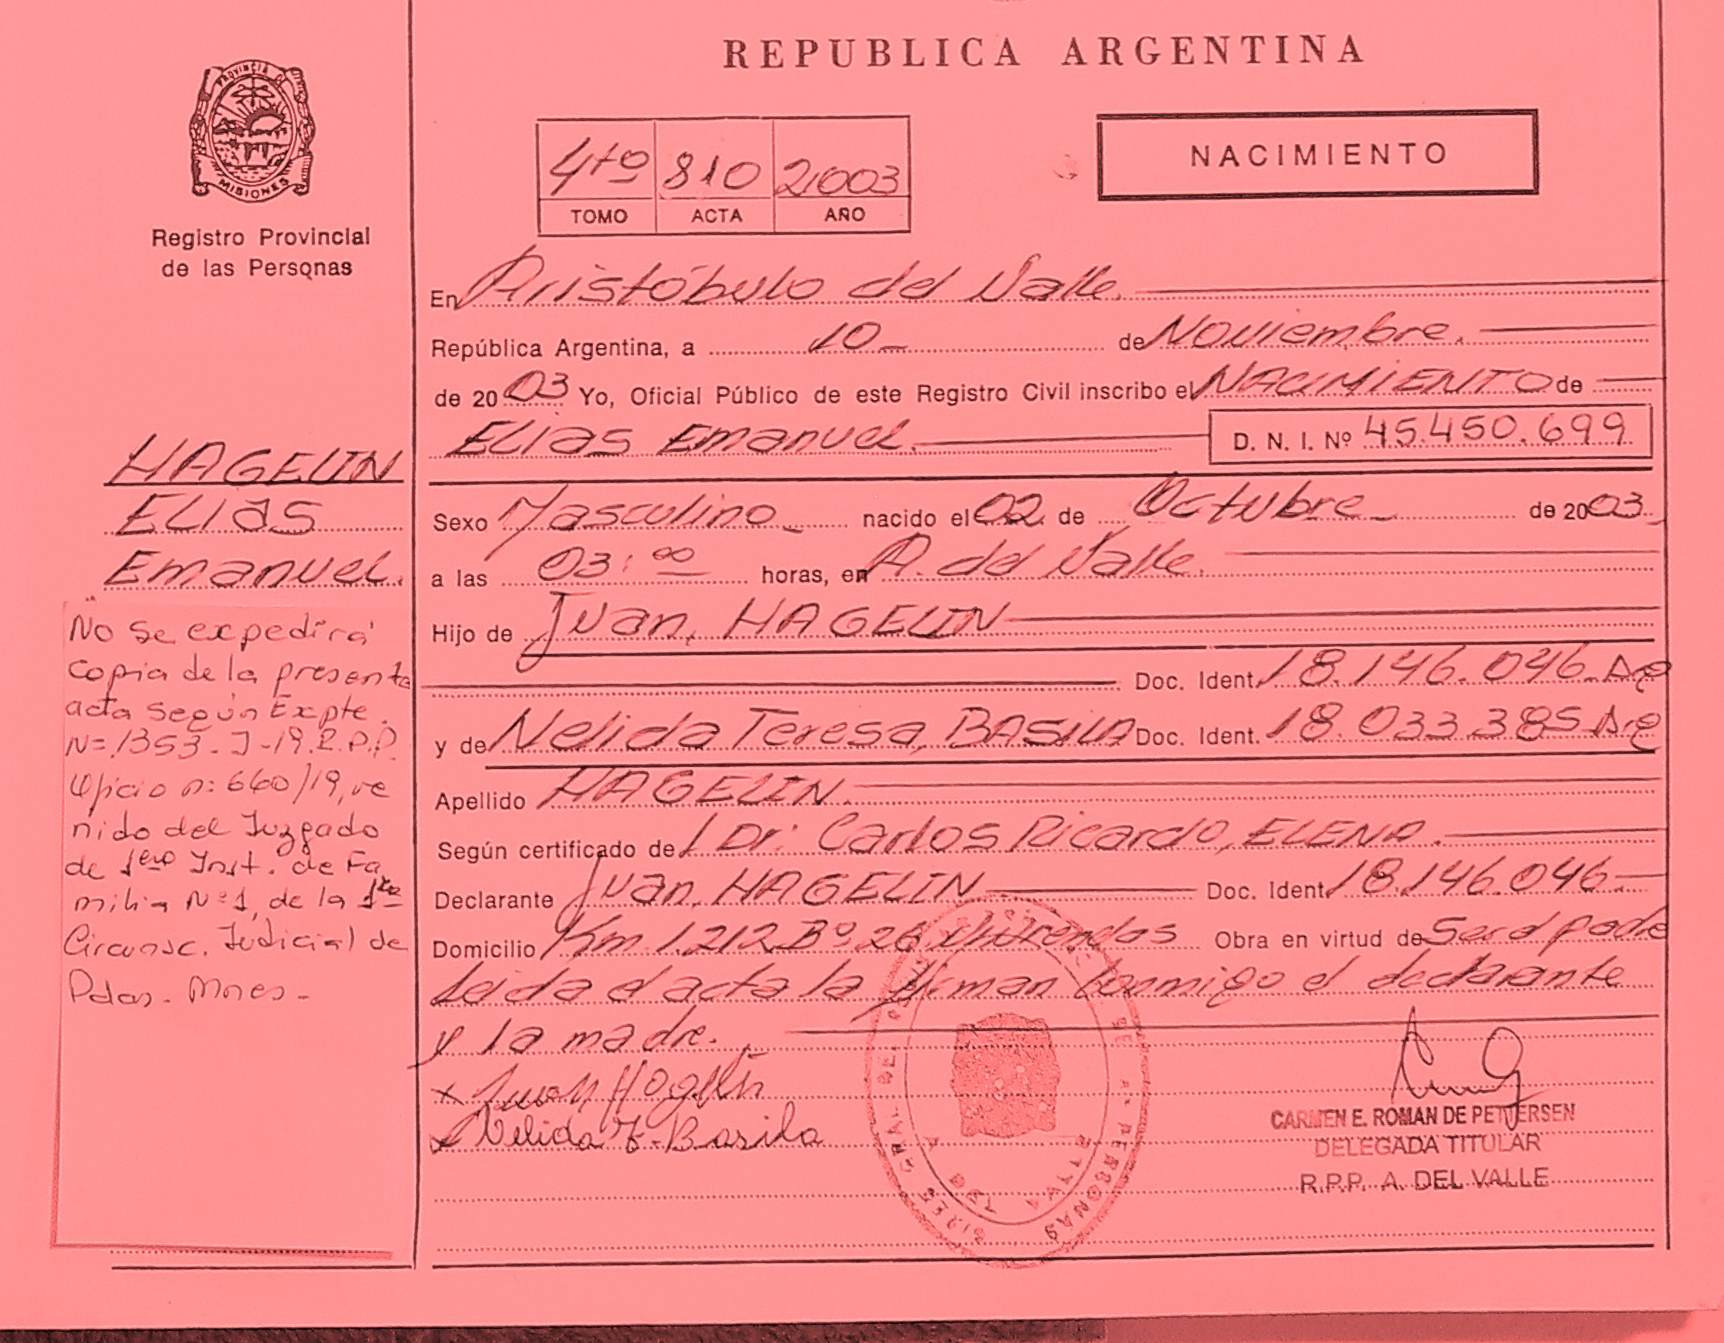 REPUBLICA ARGENTINA
PROVINCIA DE
MISIONES
Registro Provincial
de las Personas
4to 810 2003
TOMO ACTA AÑO
NACIMIENTO
En Aristóbulo del Valle.
República Argentina, a 10 de Noviembre.
de 2003 Yo, Oficial Público de este Registro Civil inscribo el NACIMIENTO de
Elias Emanuel. D. N. I. Nº 45.450.699
Sexo Masculino nacido el 02 de Octubre de 2003
a las 03:00 horas, en A. del Valle.
Hijo de Juan, HAGELIN
Doc. Ident. 18.146.046
y de Nelida Teresa, BASILA Doc. Ident. 18.033.385
Apellido HAGELIN.
Según certificado del Dr: Carlos Ricardo, ELENA.
Declarante Juan, HAGELIN Doc. Ident. 18.146.046
Domicilio Km 1.212 Bº 26 Obra en virtud de Ser el padre
Leida el acta la firman conmigo el declarante
y la madre.
Juan Hagelin
Nelida T. Basila
CARMEN E. ROMAN DE PETTERSEN
DELEGADA TITULAR
R.P.P. A. DEL VALLE
HAGELIN
Elias
Emanuel.
No se expedirá
copia de la presente
acta según Expte.
N=1353-J-19.R.P.P.
Oficio n: 660/19, ve
nido del Juzgado
de 1ero Inst. de Fa
milia Nº1, de la 1ra
Circunsc. Judicial de
Pdas. Mnes-